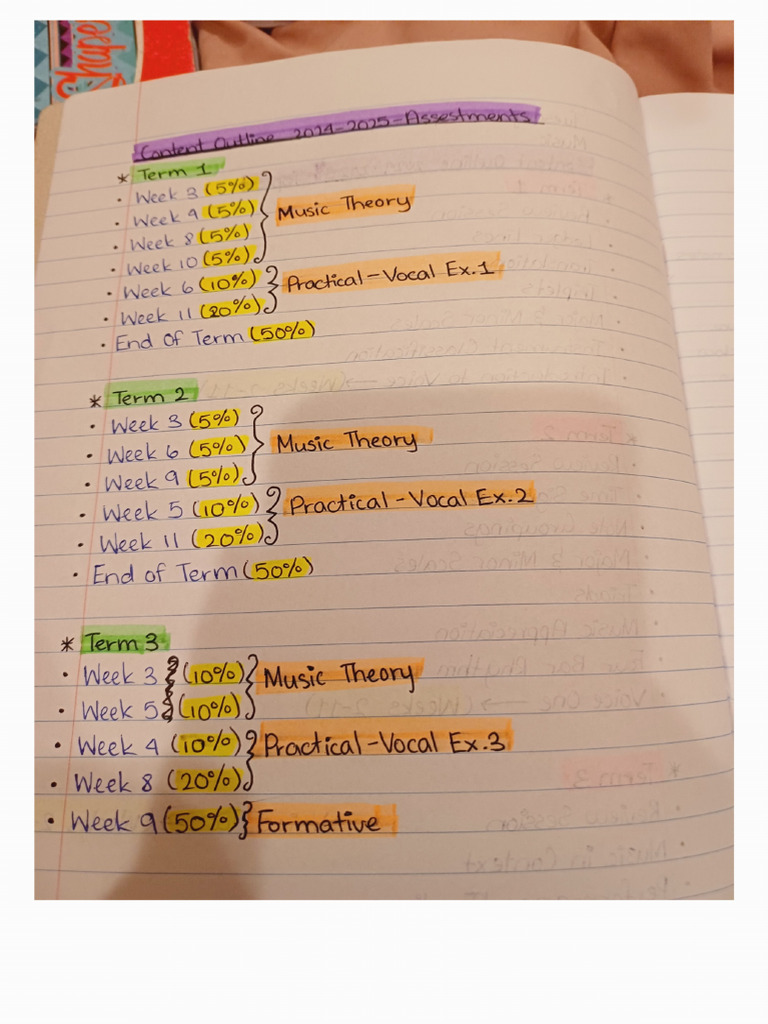 Content Outline 2024-2025-Assestments
* Term 1
• Week 3 (5%)
• Week 9 (5%)
• Week 8 (5%)
• Week 10 (5%)
Music Theory
• Week 6 (10%)
• Week 11 (20%)
Practical-Vocal Ex.1
• End of Term (50%)
* Term 2
• Week 3 (5%)
• Week 6 (5%)
• Week 9 (5%)
Music Theory
• Week 5 (10%)
• Week 11 (20%)
Practical-Vocal Ex.2
• End of Term (50%)
* Term 3
• Week 3 (10%)
• Week 5 (10%)
Music Theory
• Week 4 (10%)
• Week 8 (20%)
Practical-Vocal Ex.3
• Week 9 (50%) Formative